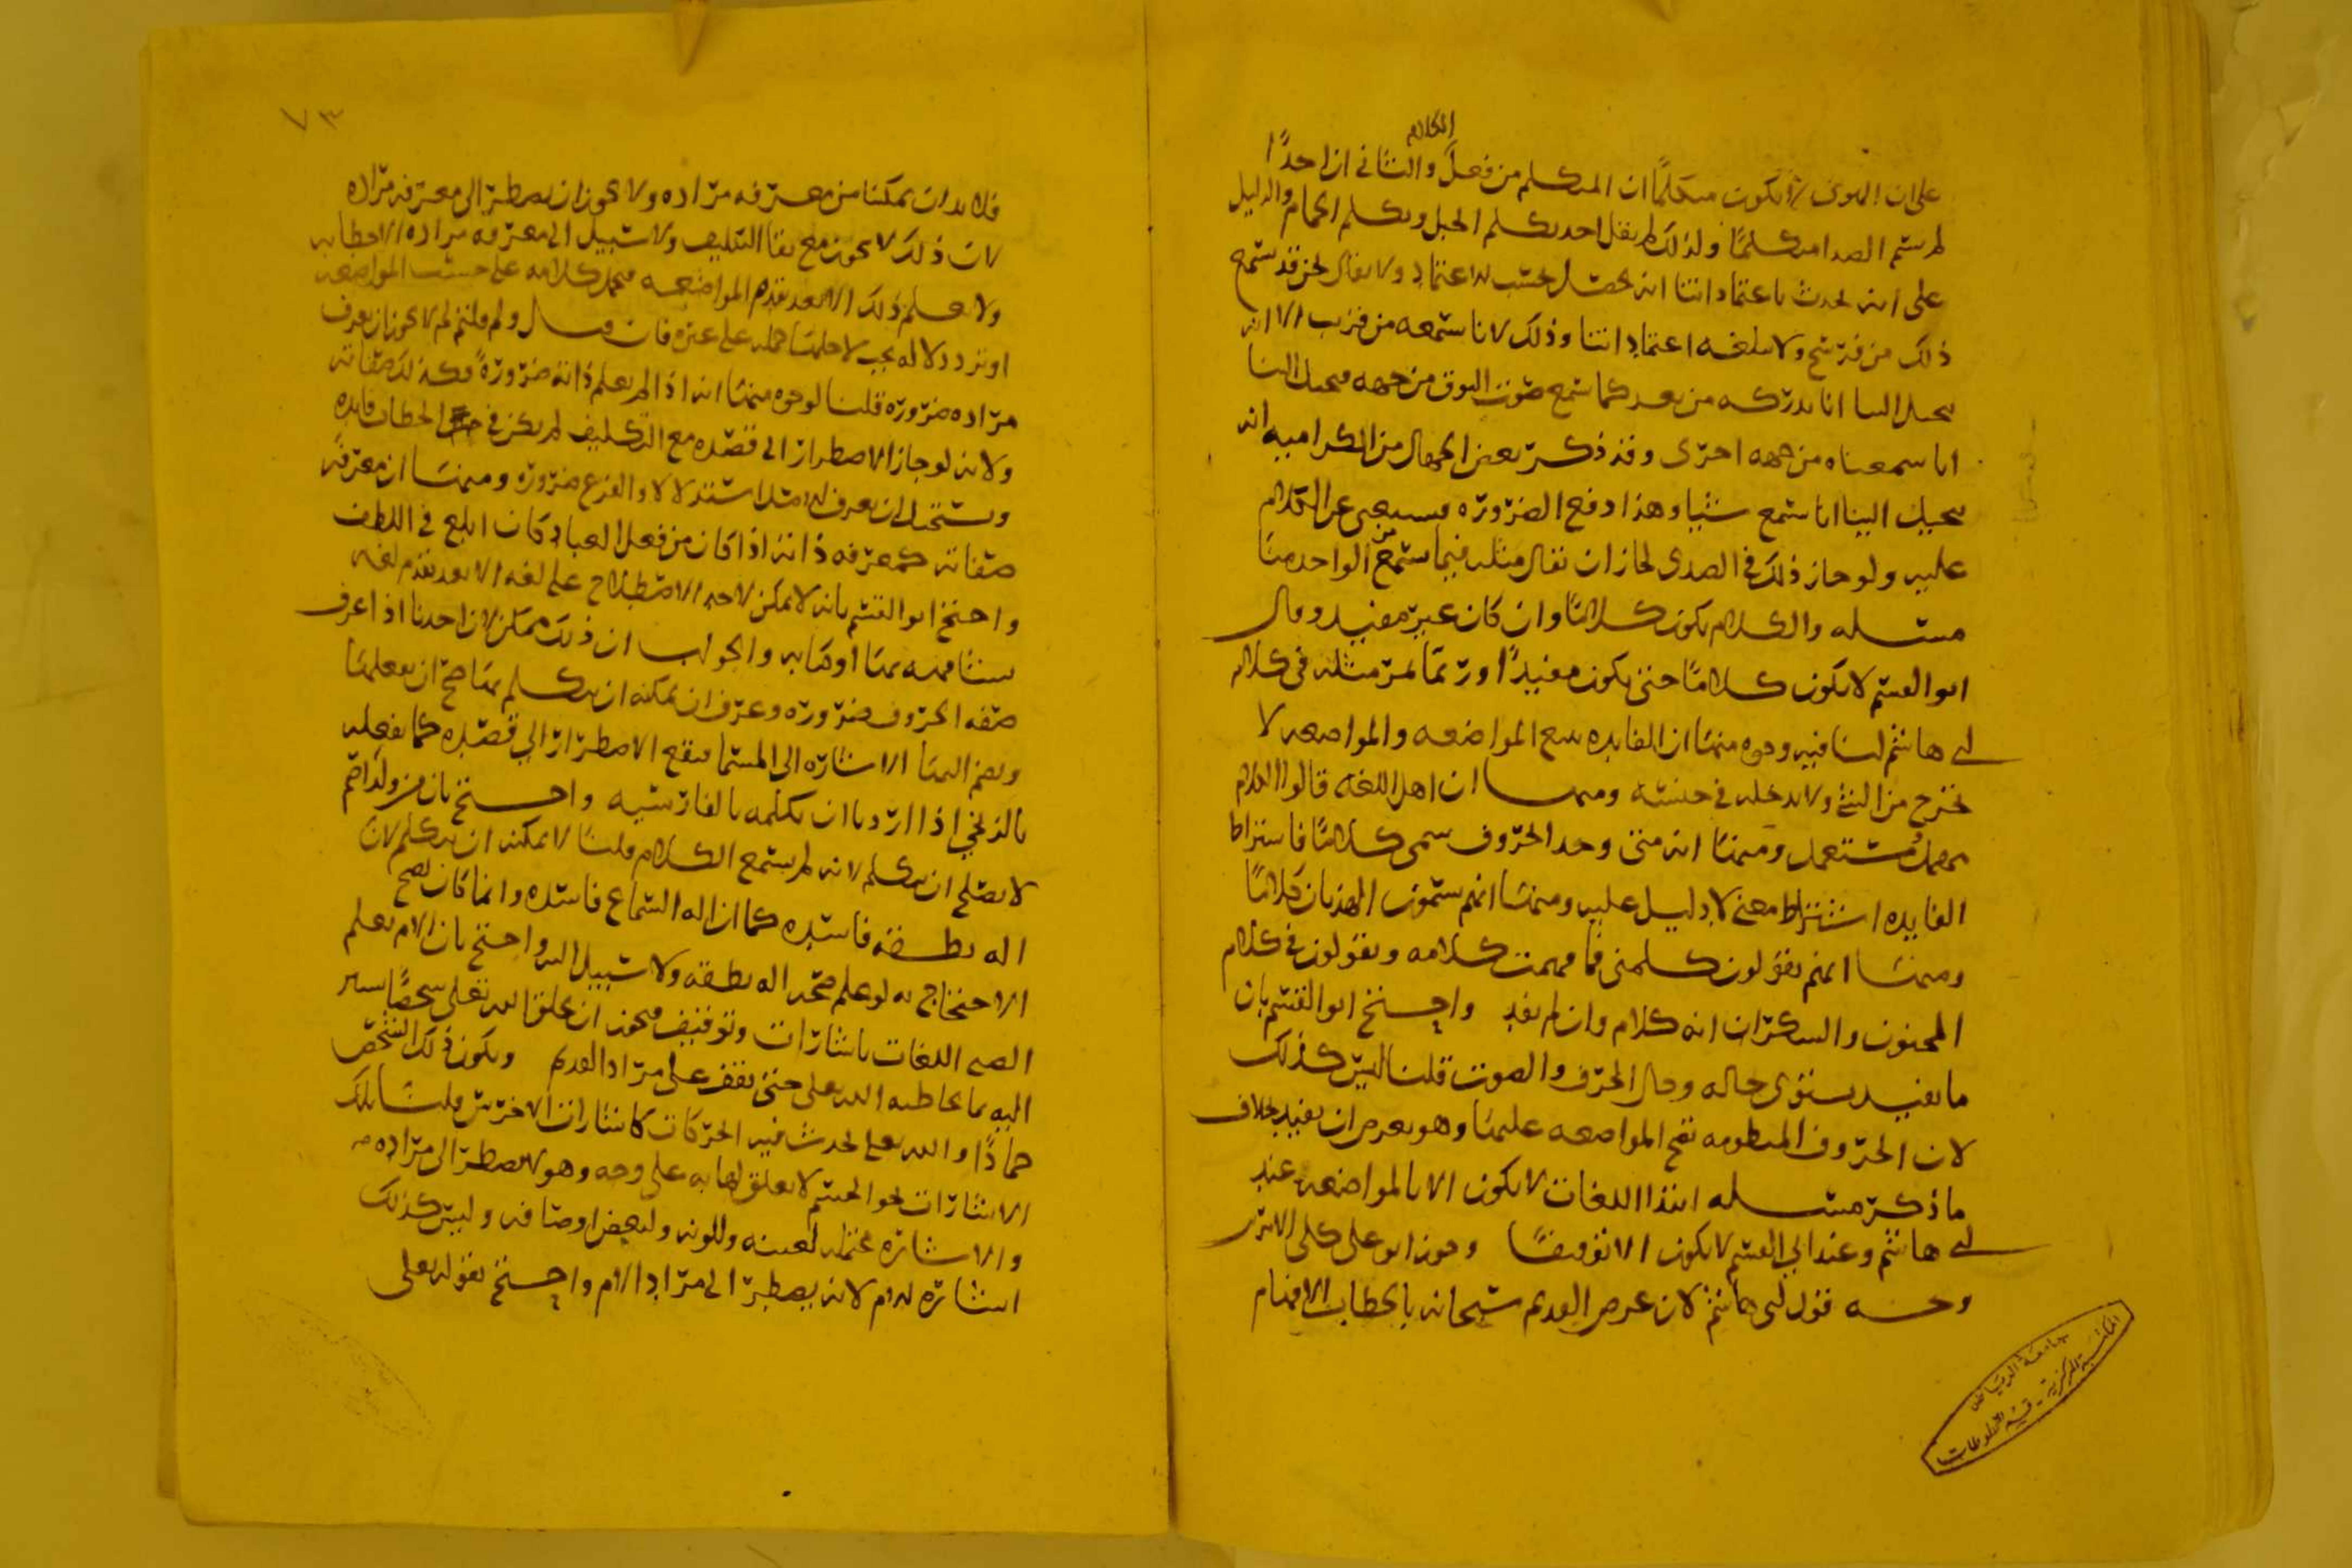 الكلام
على ان الهوى لا يكون متكلمًا ان المتكلم من فعل والثاني ان احدًا
لم يسم الصدا متكلمًا ولذلك لم يقل احد يكلم الجبل ويكلم الحمام والدليل
على انه يحدث باعتماداتنا انه يحصل بحسب اعتماد ولا يقال نحن قد نسمع
ذلك من فرسخ ولا يبلغه اعتماداتنا وذلك لانا نسمعه من قرب الا انه
يخيل الينا انا ندركه من بعد كما نسمع صوت البوق من جهه فيخيل الينا
انا سمعناه من جهه اخرى وقد ذكر بعض الجهال من الكراميه انه
يخيل الينا انا نسمع شيا وهذا دفع الضروره فيستغنى عن الكلام
عليه ولو جاز ذلك في الصدى لجاز ان يقال مثله فيما نسمع من الواحد منا
مسله والكلام يكون كلامًا وان كان غير مفيد وقال
ابو القسم لا يكون كلامًا حتى يكون مفيدًا وربما مر مثله في كلام
ابي هاشم لنا فيه وجوه منها ان الفايده تتبع المواضعه والمواضعه لا
تخرج من الشي ولا تدخله في جنسه ومنها ان اهل اللغه قالوا الكلام
مهمل ومستعمل ومنها انه متى وجد الحروف سمي كلامًا فاشتراط
الفايده اشتراط معنى لا دليل عليه ومنها انهم يسمون الهذيان كلامًا
ومنها انهم يقولون كلمني فما فهمت كلامه ويقولون في كلام
المجنون والسكران انه كلام وان لم يفد واحتج ابو القسم بان
ما يفيد يستوى حاله وحال الحرف والصوت قلنا ليس كذلك
لان الحروف المنظومه تصح المواضعه عليها وهو يعرض ان يفيد بخلاف
ما ذكر مسله ابتدا اللغات لا يكون الا بالمواضعه عند
ابي هاشم وعند ابي القسم لا يكون الا توقيفًا وجوز ابو على كلى الامرين
وجه قول ابى هاشم لان غرض القديم سبحانه بالخطاب الافهام
جامعة الرياض
المكتبة المركزية - قسم المخطوطات
٧٣
فلا بد ان يمكننا من معرفه مراده ولا يجوز ان يضطر الى معرفه مراده
لان ذلك لا يجوز مع بقا التكليف ولا سبيل الى معرفه مراده الا بخطابه
ولا يعلم ذلك الا بعد تقدم المواضعه فيحمل كلامه على حسب المواضعه
او ترد دلاله يجب لاجلها حمله على غيره فان قيل ولم قلتم لم لا يجوز ان يعرف
مراده ضروره قلنا لوجوه منها انه اذا لم يعلم ذاته ضروره فكذلك صفاته
ولانه لو جاز الاضطرار الى قصده مع التكليف لم يكن في الخطاب فايده
ويستحيل ان يعرف الاصل استدلالا والفرع ضروره ومنها ان معرفه
صفاته كمعرفه ذاته اذا كان من فعل العباد كان ابلغ في اللطف
واحتج ابو القسم بانه لا يمكن لاحد الاصطلاح على لغه الا بعد تقدم لغه
يتفاهمه بها او كتابه والجواب ان ذلك ممكن لان احدنا اذا عرف
صفه الحروف ضروره وعرف ان يمكنه ان يتكلم بها صح ان يعلمها
ويضم اليها الاشاره الى المسما فيقع الاضطرار الى قصده كما نفعله
بالزنجي اذا اردنا ان نكلمه بالفارسيه واحتج بان من ولد اصم
لا يصلح ان يتكلم لانه لم يسمع الكلام قلنا لا يمكنه ان يتكلم لان
اله نطقه فاسده كما ان اله السماع فاسده وانما كان يصح
الاحتجاج به لو علم صحه اله نطقه ولا سبيل اليه واحتج بان الام يعلم
الصبي اللغات باشارات وتوقيف فيجوز ان يخلق الله تعلى شخصًا يشير
اليه بما يخاطبه الله تعلى حتى يقف على مراد القديم ويكون ذلك الشخص
جمادًا والله تعلى يحدث فيه الحركات كاشارات الاخرس قلنا تلك
الاشارات نحو الجسم لا تعلق لها به على وجه وهو لا يضطر الى مراده
والاشاره محتمله لعينه وللونه ولبعض اوصافه وليس كذلك
اشاره الام لانه يضطر الى مراد الام واحتج بقوله تعلى